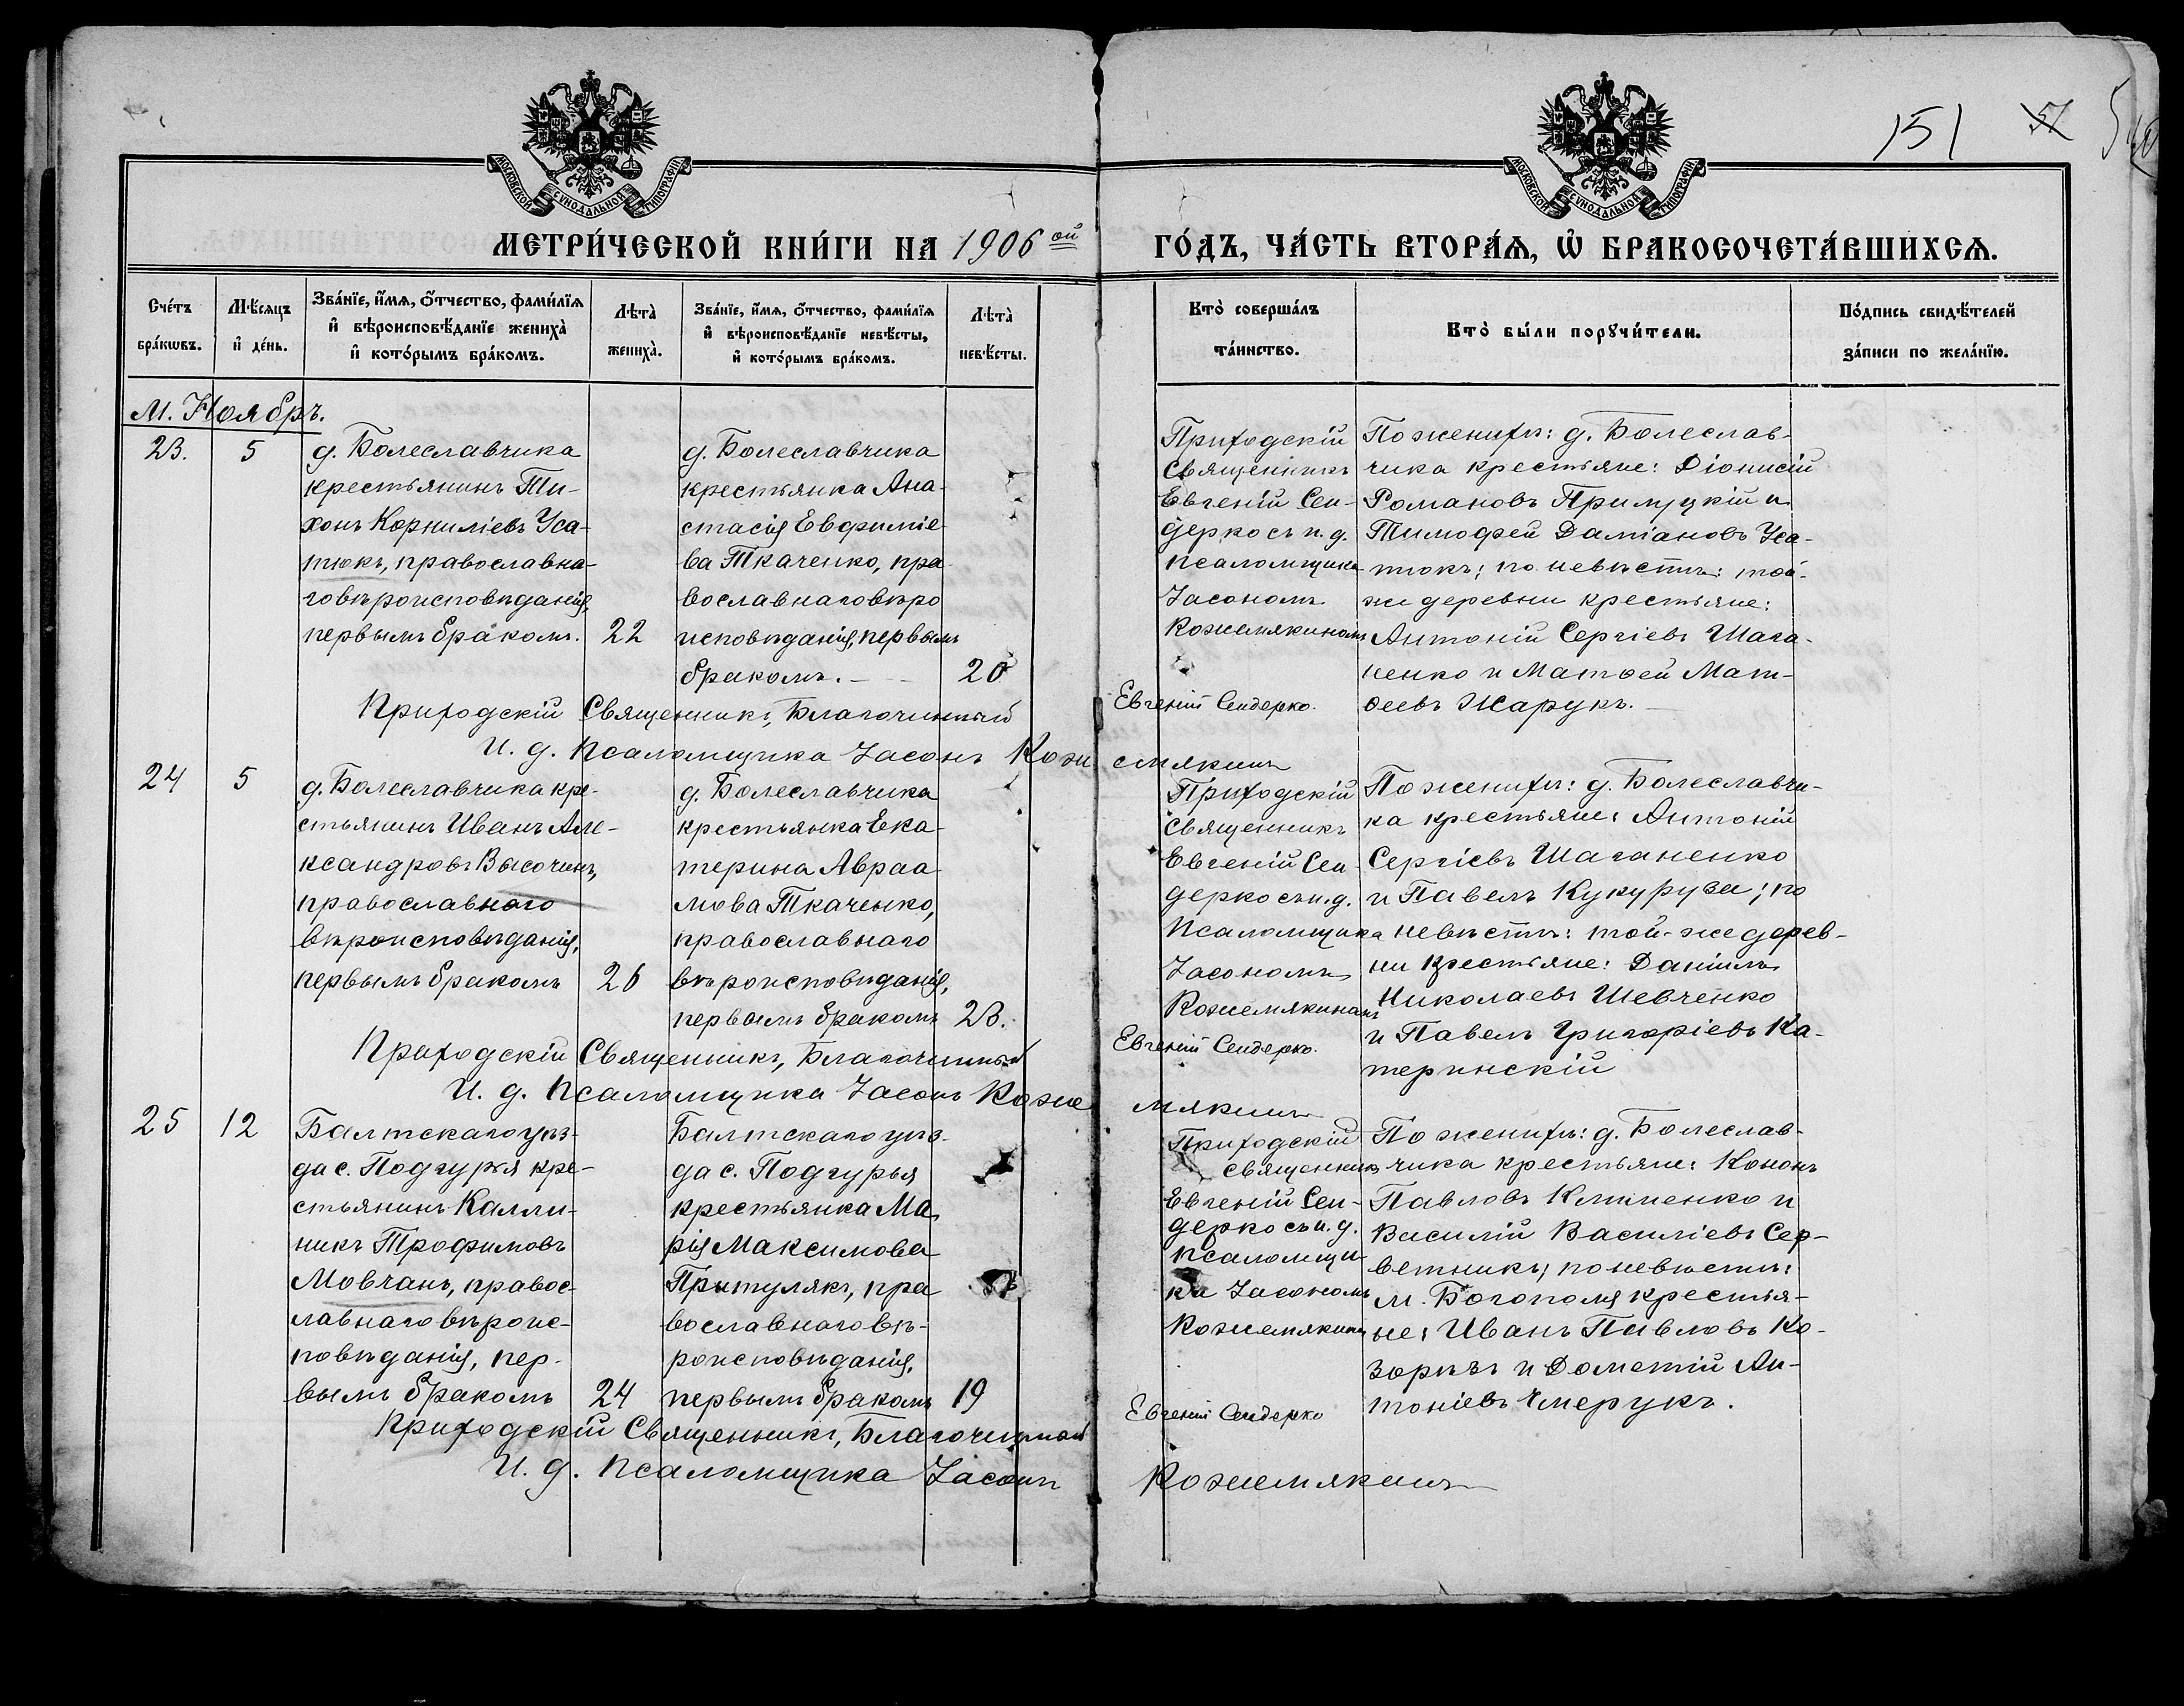 151 51
МОСКОВСКОЙ СѴНОДАЛЬНОЙ ТИПОГРАФІИ
МОСКОВСКОЙ СѴНОДАЛЬНОЙ ТИПОГРАФІИ
МЕТРИ́ЧЕСКОЙ КНИ́ГИ НА 1906 ой ГО́ДЪ, ЧА́СТЬ ВТОРА́Ѧ, Ѡ҆ БРАКОСОЧЕТА́ВШИХСѦ.
Сче́тъ
бра́кѡвъ.
Мѣ́сяцъ
и҆ де́нь.
Зва́нїе, и҆́мѧ, ѻ҆́тчество, фами́лїѧ
и҆ вѣроисповѣ́данїе жениха̀
и҆ кото́рымъ бра́комъ.
Лѣта̀
жениха̀.
Зва́нїе, и҆́мѧ, ѻ҆́тчество, фами́лїѧ
и҆ вѣроисповѣ́данїе невѣ́сты,
и҆ кото́рымъ бра́комъ.
Лѣта̀
невѣ́сты.
Кто̀ соверша́лъ
та́инство.
Кто̀ бы́ли порꙋчи́тели.
По́дпись свидѣ́телей
за́писи по жела́нїю.
М. Ноябрь.
23. 5
д. Болеславчика
крестьянинъ Ти-
хонъ Корниліевъ Уса-
тюкъ, православна-
го вѣроисповѣданія,
первымъ бракомъ. 22
д. Болеславчика
крестьянка Ана-
стасія Евфиміе
ва Ткаченко, пра
вославнаго вѣро
исповѣданія, первымъ
бракомъ. 20
Приходскій
Священникъ
Евгеній Сен-
дерко съ и. д.
псаломщика
Іасономъ
Кожемякиномъ
По женихѣ: д. Болеслав-
чика крестьяне: Діонисій
Романовъ Прилуцкій и
Тимофей Даміановъ Уса-
тюкъ; по невѣстѣ: той-
же деревни крестьяне:
Антоній Сергіевъ Шага-
ненко и Матѳей Мат-
ѳеевъ Жарукъ.
Приходскій Священникъ, Благочинный Евгеній Сендерко.
И. д. Псаломщика Іасонъ Кожемякинъ
24 5
д. Болеславчика кре-
стьянинъ Иванъ Але-
ксандровъ Высочинъ,
православнаго
вѣроисповѣданія,
первымъ бракомъ 26
д. Болеславчика
крестьянка Ека-
терина Авраа
мова Ткаченко,
православнаго
вѣроисповѣданія,
первымъ бракомъ 23.
Приходскій
Священникъ
Евгеній Сен
дерко съ и. д.
Псаломщика
Іасономъ
Кожемякинамъ
По женихѣ: д. Болеславчи-
ка крестьяне: Антоній
Сергіевъ Шаганенко
и Павелъ Кукуруза; по
невѣстѣ: той-же дерев-
ни крестьяне: Даніилъ
Николаевъ Шевченко
и Павелъ Григоріевъ Ка-
теринскій
Приходскій Священникъ, Благочинный Евгеній Сендерко.
И. д. Псаломщика Іасонъ Кожемякинъ
25 12
Балтскаго уѣз-
да с. Подгурья кре-
стьянинъ Калли-
никъ Трофимовъ
Мовчанъ, правос-
лавнаго вѣроис-
повѣданія, пер-
вымъ бракомъ 24
Балтскаго уѣз-
да с. Подгурья
крестьянка Ма
рія Максимова
Притулякъ, пра
вославнаго вѣ-
роисповѣданія,
первымъ бракомъ 19
Приходскій
Священникъ
Евгеній Сен-
дерко съ и. д.
псаломщи
ка Іасономъ
Кожемякинъ
По женихѣ: д. Болеслав-
чика крестьяне: Кононъ
Павловъ Клименко и
Василій Василіевъ Сер-
ветникъ; по невѣстѣ:
м. Богополя крестья-
не: Иванъ Павловъ Ко-
зорѣзъ и Дометій Ан-
тоніевъ Чмерукъ.
Приходскій Священникъ, Благочинный Евгеній Сендерко
И. д. Псаломщика Іасонъ Кожемякинъ